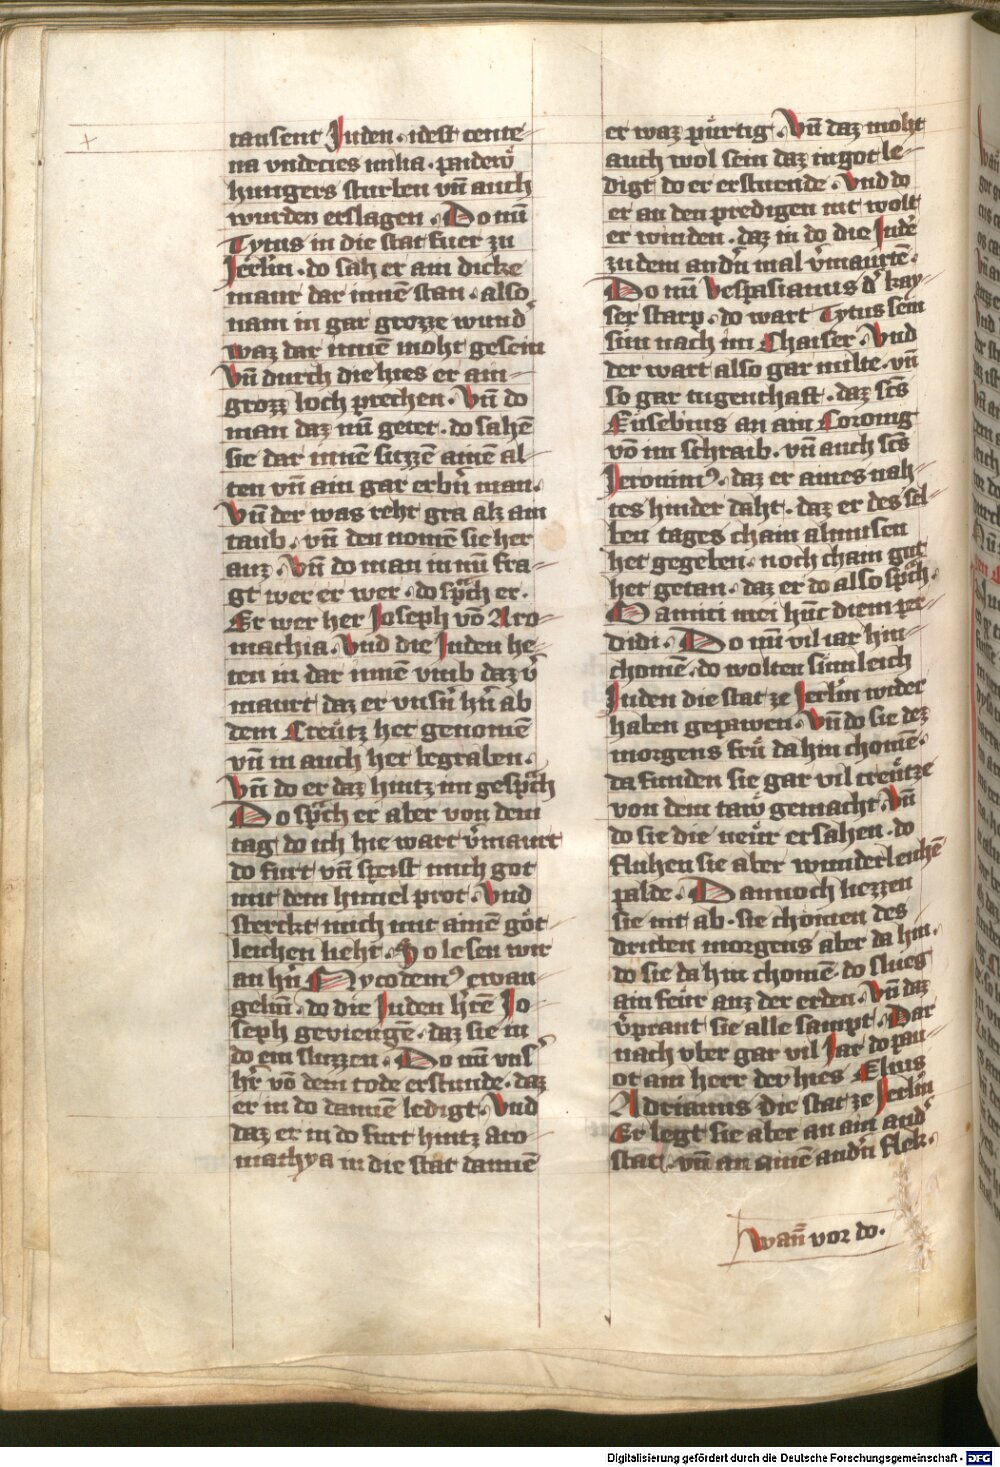 tausent Juden · idest cente-
na vndecies milia · paidew̄
hungers sturben vn̄ auch
wurden erslagen · Do nu
Tytus in die stat fuer zu
Jerl̄m · do sah er ain dicke
maur dar innē stan · also
nam in gar grozze wund͛
waz dar innē moht gesein
Vn̄ durch die hies er ain
grozz loch prechen · Vn̄ do
man daz nū getet · do sahē
sie dar innē sitzzē ainē al-
ten vn̄ ain gar erb͛n man ·
Vn̄ der was reht gra alz ain
taub · vn̄ den nomē sie her
auz · Vn̄ do man in nū fra-
gt wer er wer · do sp͛ch er ·
Er wer her Joseph võ Aro-
mathia · Vnd die Juden he-
ten in dar innē vmb daz v͛
maurt daz er vns͛n h͛n ab
dem Creütz het genomē
vn̄ in auch het begraben ·
Vn̄ do er daz hintz im gesp͛ch
Do sp͛ch er aber von dem
tag do ich hie wart v͛maurt
do furt vn̄ speist mich got
mit dem himel prot · Vnd
sterckt mich mit ainē göt-
leichen lieht · So lesen wir
an h͛n Nycodem⁹ ewan
gelin̄ · do die Juden h͛rē Jo
seph geviengē · daz sie in
do ein sluzzen · Do nū vns͛
h͛r võ dem tode erstunde · daz
er in do dannē ledigt · Vnd
daz er in do furt hintz aro-
mathya in die stat dannē
er waz pürtig · Vn̄ daz moht
auch wol sein daz in got le-
digt do er erstuende · Vnd do
er an den predigen nit wolt
er winden · daz in do die Jud͛
zu dem and͛n mal v͛maurtē ·
Do nū Vespasianus d͛ kay-
ser starp · do wart Tytus sein
sun nach im Chaiser · Vnd
der wart also gar milte · vn̄
so gar tugenthaft · daz sc̄s
Eusebius an ain Coronig
võ im schraib · vn̄ auch sc̄s
Jeronim⁹ · daz er aines nah-
tes hinder daht · daz er des sel-
ben tages chain almusen
het gegeben · noch chain gut
het getan · daz er do also sp͛ch ·
O amici mei hūc diem per-
didi · Do nū vil iar hin-
chomē · do wolten sümleich
Juden die stat ze Jerl̄m wider
haben gepawen · Vn̄ do sie dez
morgens frü da hin chomē ·
da funden sie gar vil creütze
von dem taw gemacht · Vn̄
do sie die neür ersahen · do
fluhen sie aber wunderleichē
palde · Dannoch liezzen
sie nit ab · sie chomen des
dritten morgens aber da hin ·
do sie da hin chomē · do slueg
ain feür auz der erden · Vn̄ daz
v͛prant sie alle sampt · Dar
nach vber gar vil Jar do pau-
ot ain herr der hies Elius
Adrianus die stat ze Jerl̄m
Er legt sie aber an ain and͛
stat · vn̄ an ainē and͛n flek ·
wan̄ vor do ·
Digitalisierung gefördert durch die Deutsche Forschungsgemeinschaft - DFG